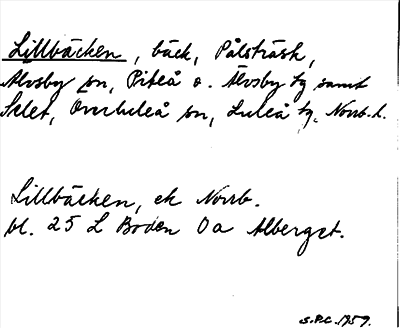 Lillbäcken, bäck, Pålsträsk,
Älvsby sn, Piteå o. Älvsby tg samt
Selet, Överluleå sn, Luleå tg, Norrb. l.
Lillbäcken, ek Norrb.
bl. 25 L Boden 0a Alberget.
S.P.C. 1959.